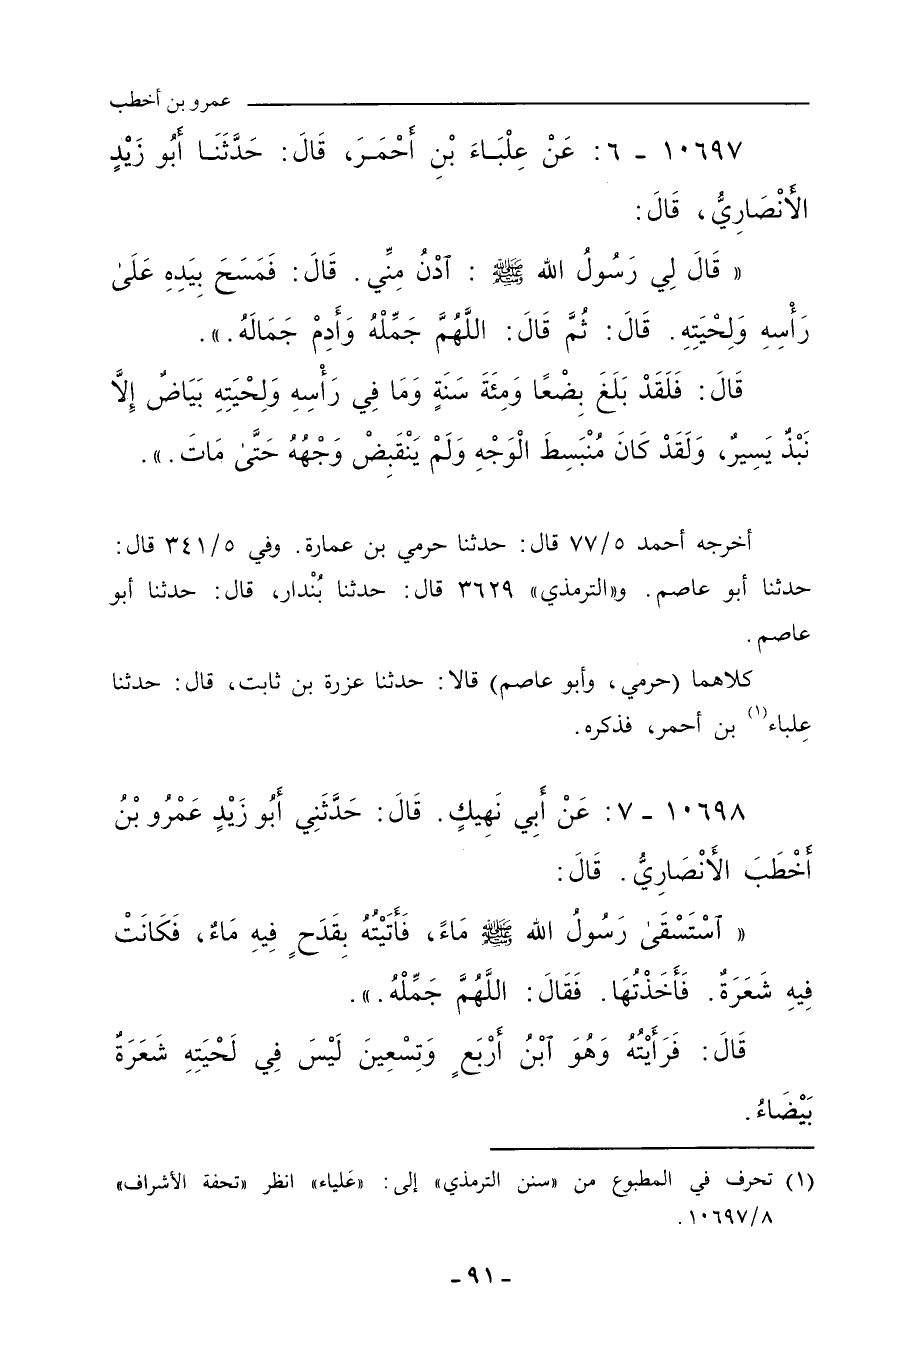 عمرو بن أخطب
١٠٦٩٧ - ٦: عَنْ عِلْبَاءَ بْنِ أَحْمَرَ، قَالَ: حَدَّثَنَا أَبُو زَيْدٍ
الأَنْصَارِيُّ، قَالَ:
« قَالَ لِي رَسُولُ اللهِ ﷺ : ٱدْنُ مِنِّي. قَالَ: فَمَسَحَ بِيَدِهِ عَلَىٰ
رَأْسِهِ وَلِحْيَتِهِ. قَالَ: ثُمَّ قَالَ: اللَّهُمَّ جَمِّلْهُ وَأَدِمْ جَمَالَهُ.».
قَالَ: فَلَقَدْ بَلَغَ بِضْعًا وَمِئَةَ سَنَةٍ وَمَا فِي رَأْسِهِ وَلِحْيَتِهِ بَيَاضٌ إِلاَّ
نَبْذٌ يَسِيرٌ، وَلَقَدْ كَانَ مُنْبَسِطَ الْوَجْهِ وَلَمْ يَنْقَبِضْ وَجْهُهُ حَتَّىٰ مَاتَ.».
أخرجه أحمد ٧٧/٥ قال: حدثنا حرمي بن عمارة. وفي ٣٤١/٥ قال:
حدثنا أبو عاصم. و«الترمذي» ٣٦٢٩ قال: حدثنا بُنْدار، قال: حدثنا أبو
عاصم.
كلاهما (حرمي، وأبو عاصم) قالا: حدثنا عزرة بن ثابت، قال: حدثنا
عِلباء(١) بن أحمر، فذكره.
١٠٦٩٨ - ٧: عَنْ أَبِي نَهِيكٍ. قَالَ: حَدَّثَنِي أَبُو زَيْدٍ عَمْرُو بْنُ
أَخْطَبَ الأَنْصَارِيُّ. قَالَ:
« ٱسْتَسْقَىٰ رَسُولُ اللهِ ﷺ مَاءً، فَأَتَيْتُهُ بِقَدَحٍ فِيهِ مَاءٌ، فَكَانَتْ
فِيهِ شَعَرَةٌ. فَأَخَذْتُهَا. فَقَالَ: اللَّهُمَّ جَمِّلْهُ.».
قَالَ: فَرَأَيْتُهُ وَهُوَ ٱبْنُ أَرْبَعٍ وَتِسْعِينَ لَيْسَ فِي لَحْيَتِهِ شَعَرَةٌ
بَيْضَاءُ.
(١) تحرف في المطبوع من «سنن الترمذي» إلى: «عَلياء» انظر «تحفة الأشراف»
١٠٦٩٧/٨.
- ٩١ -